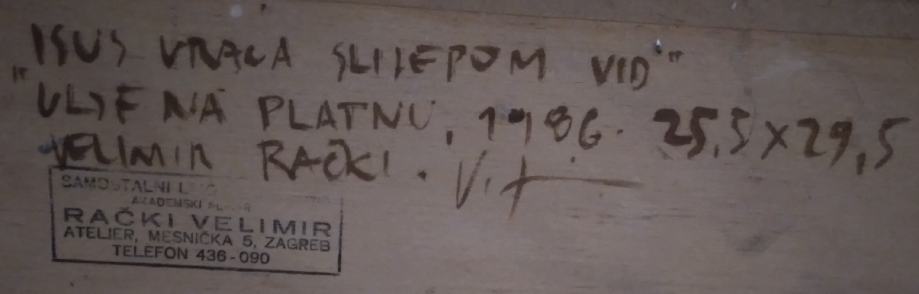 "ISUS VRAĆA SLIJEPOM VID"
ULJE NA PLATNU, 1986. 25,5 x 29,5
VELIMIR RAČKI.
SAMOSTALNI
AKADEMSKI
RAČKI VELIMIR
ATELIER, MESNIČKA 5, ZAGREB
TELEFON 436-090